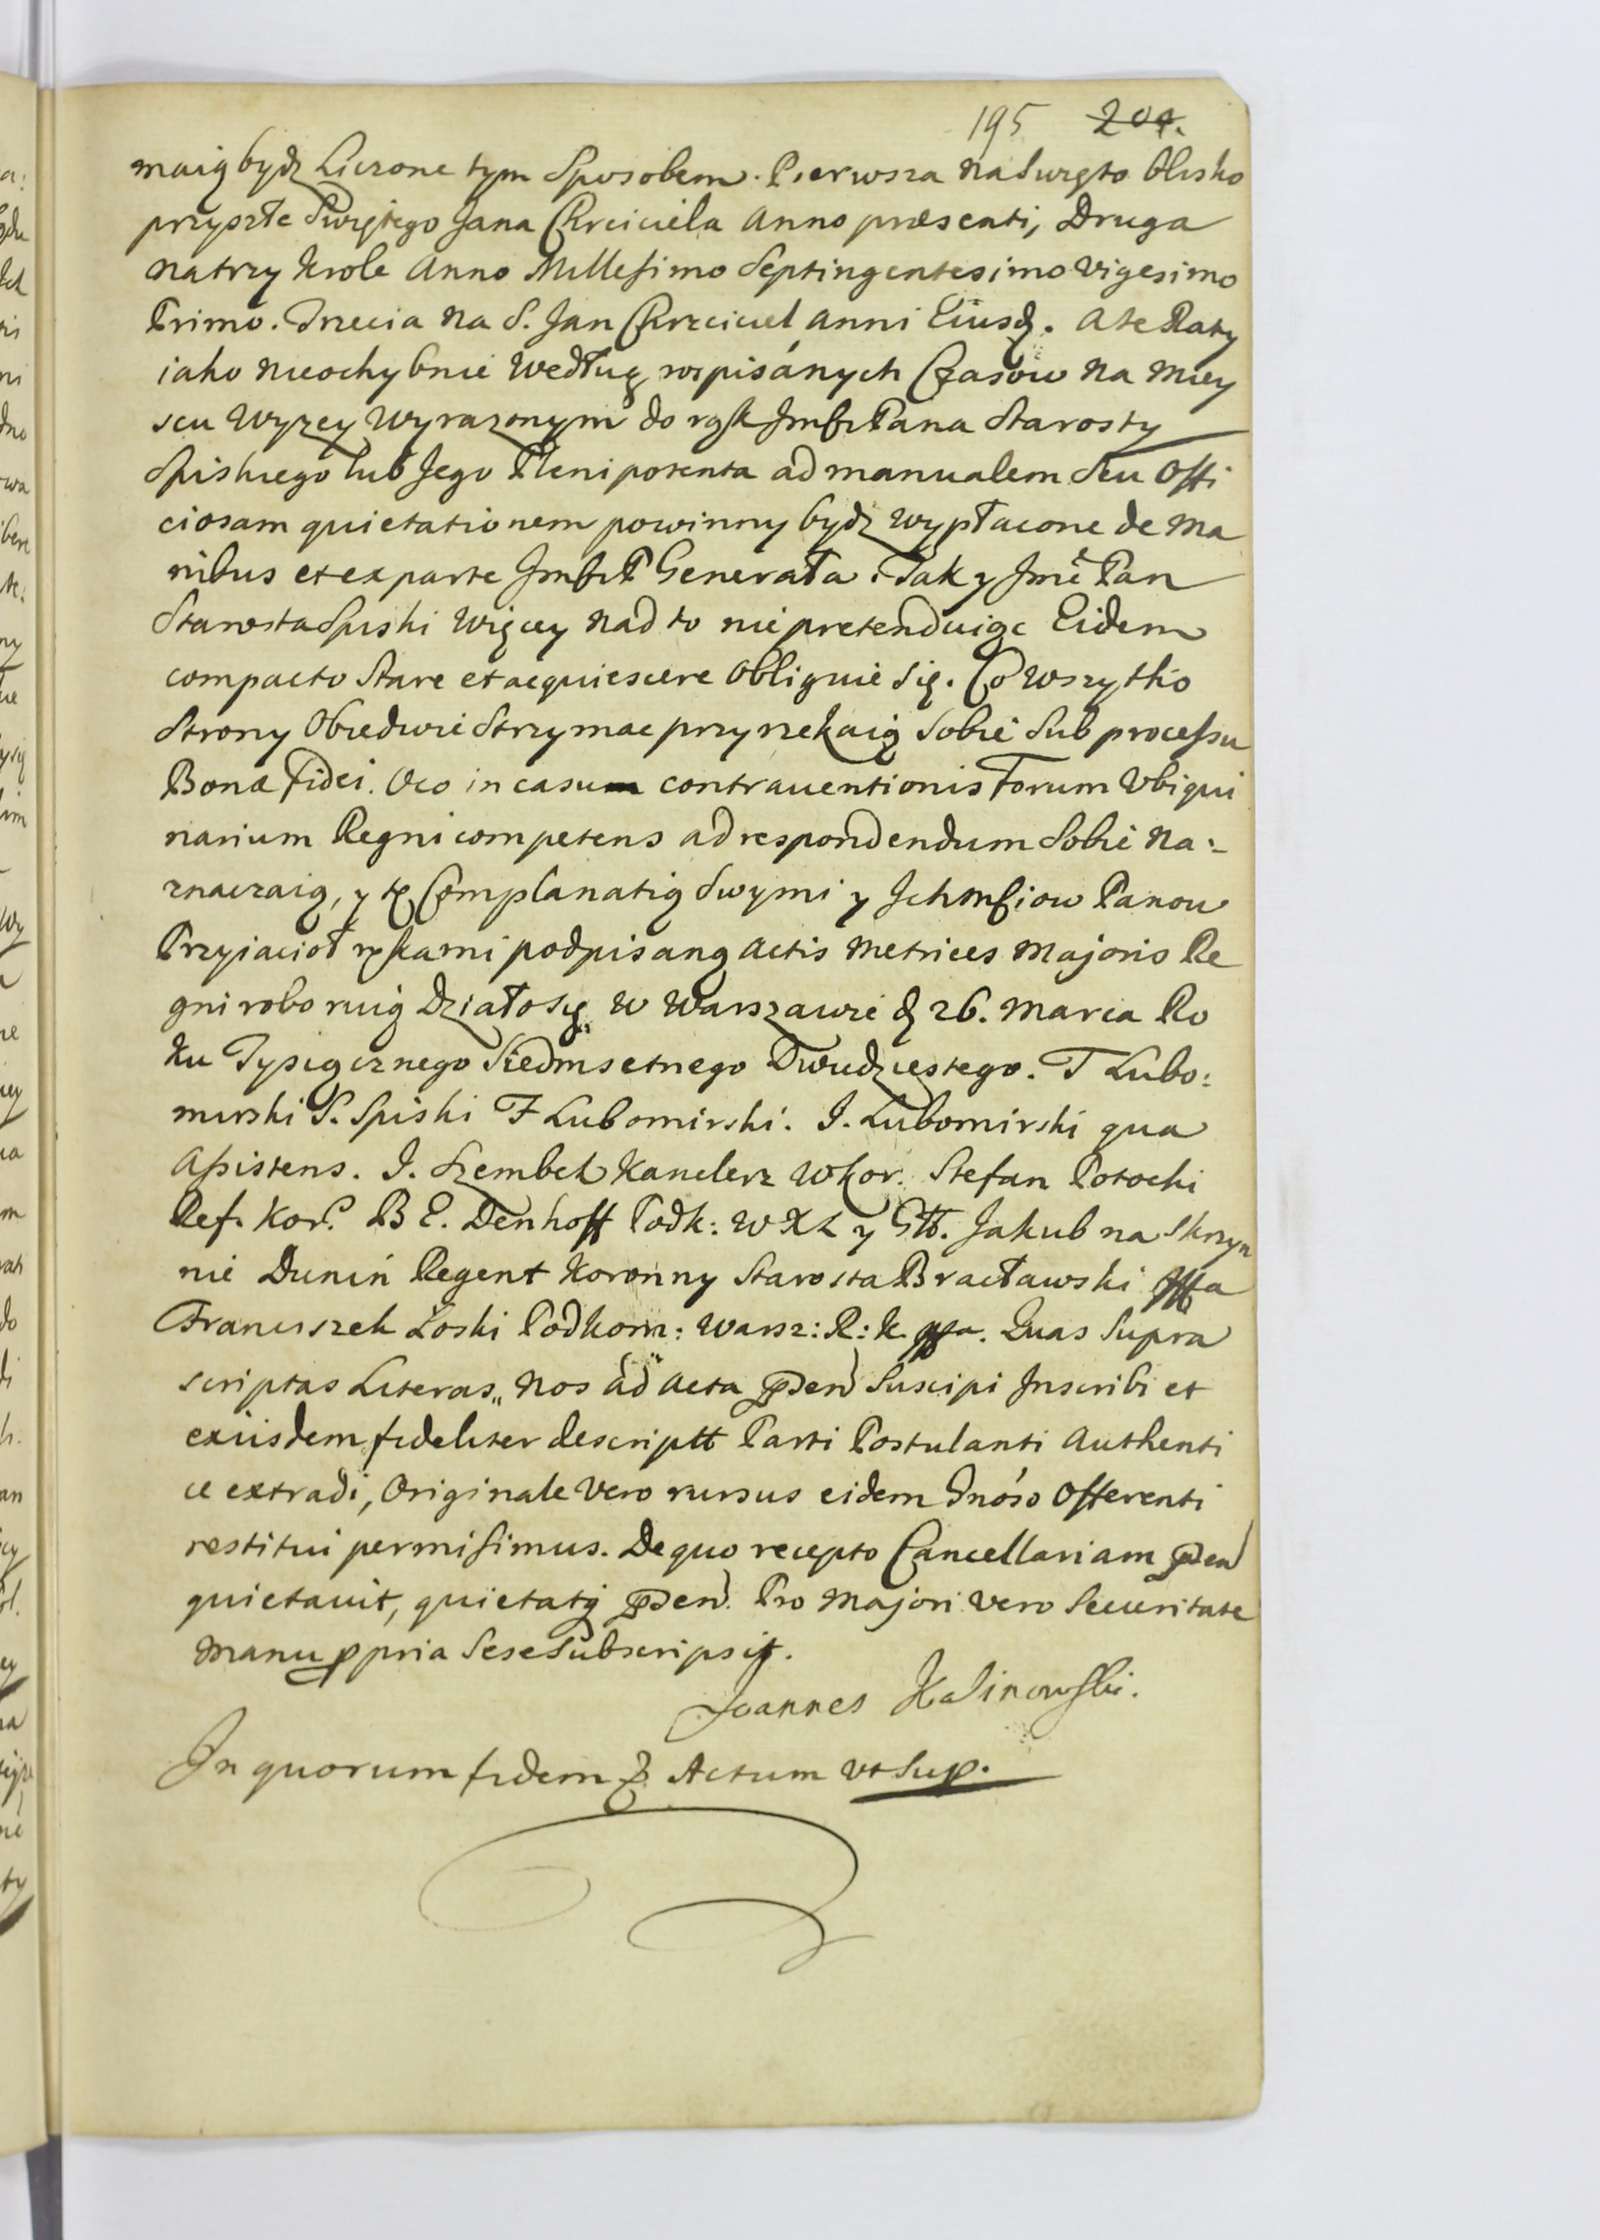 195 204.
maią bydź Liczone tym Sposobem. Pierwsza na Swięto blisko
przyszłe Swiętego Jana Chrciciela Anno præsenti, Druga
na trzy Krole Anno Millesimo Septingentesimo Vigesimo
Primo. Trzecia na S. Jan Chrzciciel Anni Eiusd. A te Raty
iako nieochybnie według rospisánych Czasow na miey
scu wyzey wyrazonym do rąk Jmści Pana Starosty
Spiskiego lub Jego Plenipotenta ad manualem Seu Offi
ciosam quietationem powinny bydz wypłacone de ma
nibus et ex parte Jmści P Generała. Tak y Jmć Pan
Starosta Spiski więcey nad to nie pretenduiąc Eidem
compacto Stare et acquiescere Obliguie Się. Co wszytko
Strony Obiedwie Strzymac przyrzekaią Sobie Sub processu
Bonæ fidei. Oco in casum contrauentionis Forum Vbiqui
narium Regni competens ad respondendum Sobie na:
znaczaią, y tę Complanatią Swymi y Ichmściow Panow
Przyiacioł rękami podpisaną Actis Metrices Majoris Re
gni roboruią Działo Się w Warszawie d 26. Marca Ro
ku Tysiącznego Siedmsetnego Dwudziestego. T Lubo:
mirski S. Spiski F Lubomirski. J. Lubomirski qua
Assistens. J. Szembek Kanclerz Wkor. Stefan Potocki
Ref. Kor. B E. Denhoff Podk: W X L y Gtt. Jakub na Skrzyn
nie Dunin Regent Koronny Starosta Bracławski
Franciszek Łoski Podkom: Warsz: R: K. Quas Supra
scriptas Literas, Nos ad Acta pñden Suscipi Inscribi et
exiisdem fideliter descriptt Parti Postulanti Authenti
ce extradi, Originale Vero rursus eidem Gnóso Offerenti
restitui permisimus. De quo recepto Cancellariam pñden
quietauit, quietatq pñden. Pro Majori Vero Securitate
Manu ppria Sese Subscripsit.
Joannes Kalinowski.
In quorum fidem & Actum vt Sup.